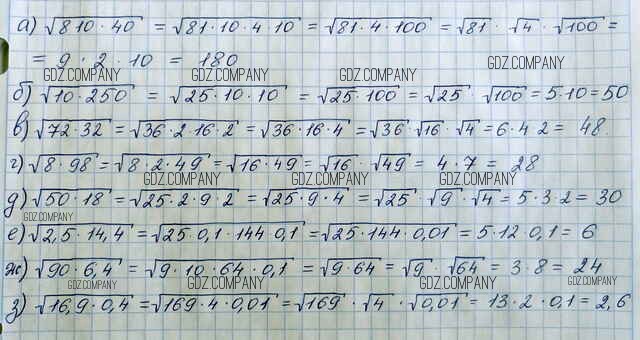 а) √810·40 = √81·10·4·10 = √81·4·100 = √81 · √4 · √100 =
= 9 · 2 · 10 = 180
GDZ.COMPANY GDZ.COMPANY GDZ.COMPANY GDZ.COMPANY
б) √10·250 = √25·10·10 = √25·100 = √25 · √100 = 5·10 = 50
в) √72·32 = √36·2·16·2 = √36·16·4 = √36 · √16 · √4 = 6·4·2 = 48.
г) √8·98 = √8·2·49 = √16·49 = √16 · √49 = 4·7 = 28
GDZ.COMPANY GDZ.COMPANY GDZ.COMPANY
д) √50·18 = √25·2·9·2 = √25·9·4 = √25 · √9 · √4 = 5·3·2 = 30
GDZ.COMPANY
е) √2,5·14,4 = √25·0,1·144·0,1 = √25·144·0,01 = 5·12·0,1 = 6
ж) √90·6,4 = √9·10·64·0,1 = √9·64 = √9 · √64 = 3·8 = 24
GDZ.COMPANY GDZ.COMPANY GDZ.COMPANY GDZ.COMPANY
з) √16,9·0,4 = √169·4·0,01 = √169 · √4 · √0,01 = 13·2·0,1 = 2,6